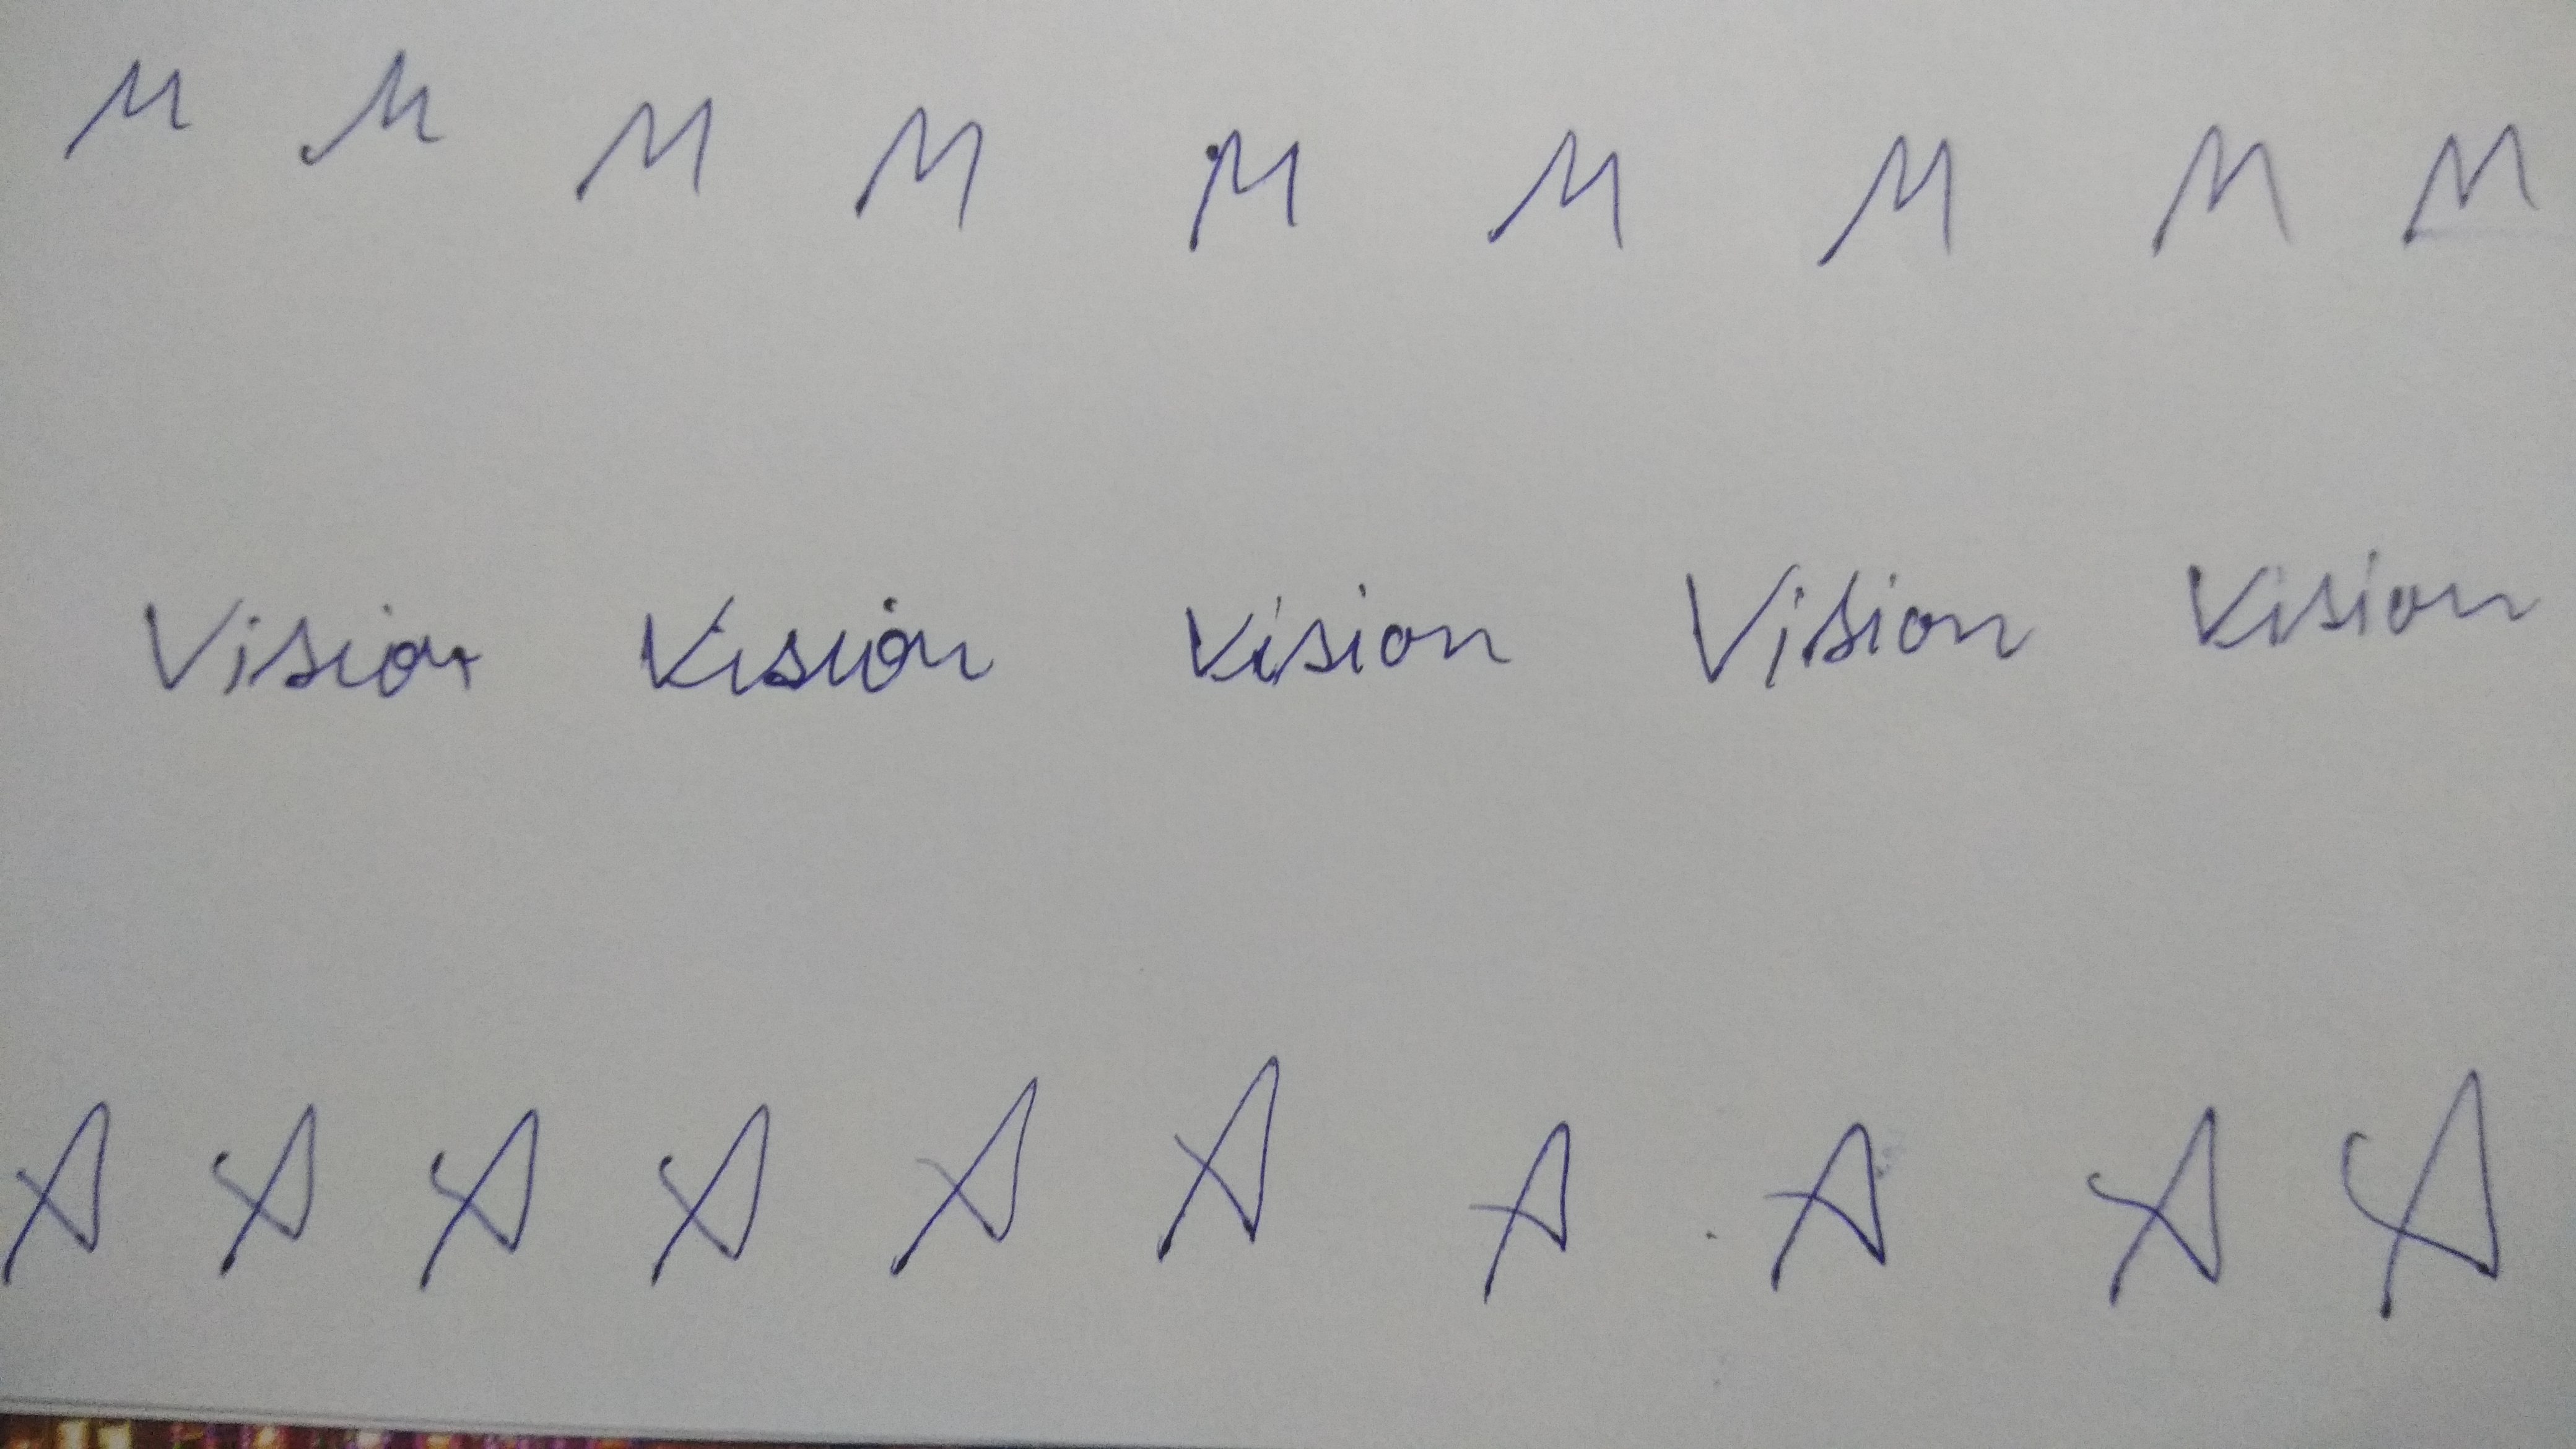 M M M M M M M M M
Vision Vision Vision Vision Vision
A A A A A A A A A A